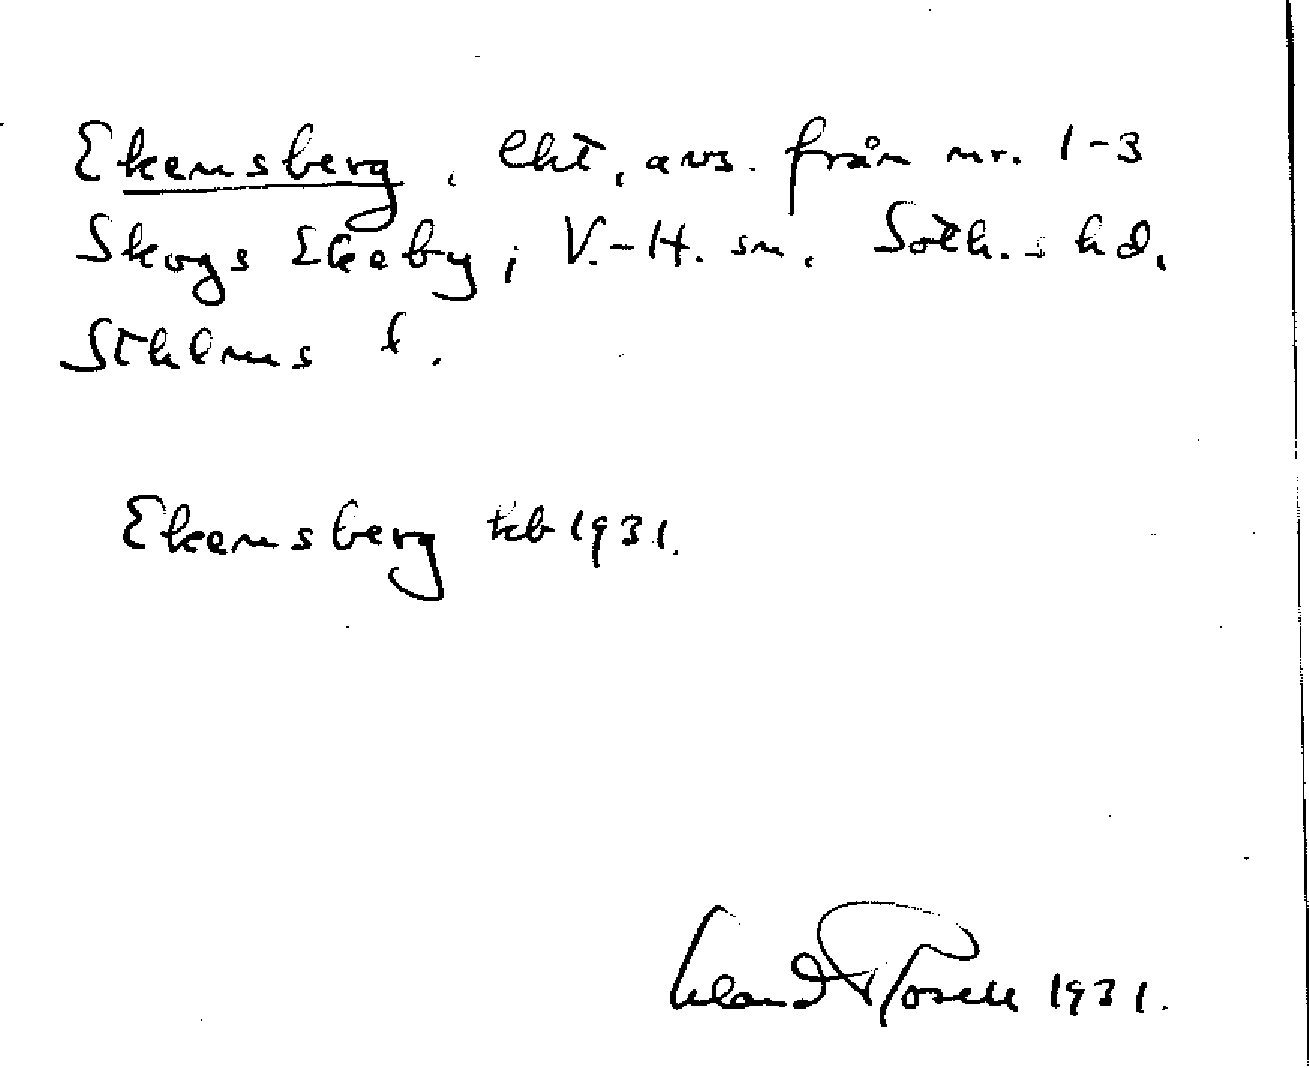 Ekensberg, lht, avs. från nr. 1-3
Skogs Ekeby, i V.-H. sn. Soth.s hd.
Sthlms l.
Ekensberg tkb 1931.
Erland Rosell 1931.